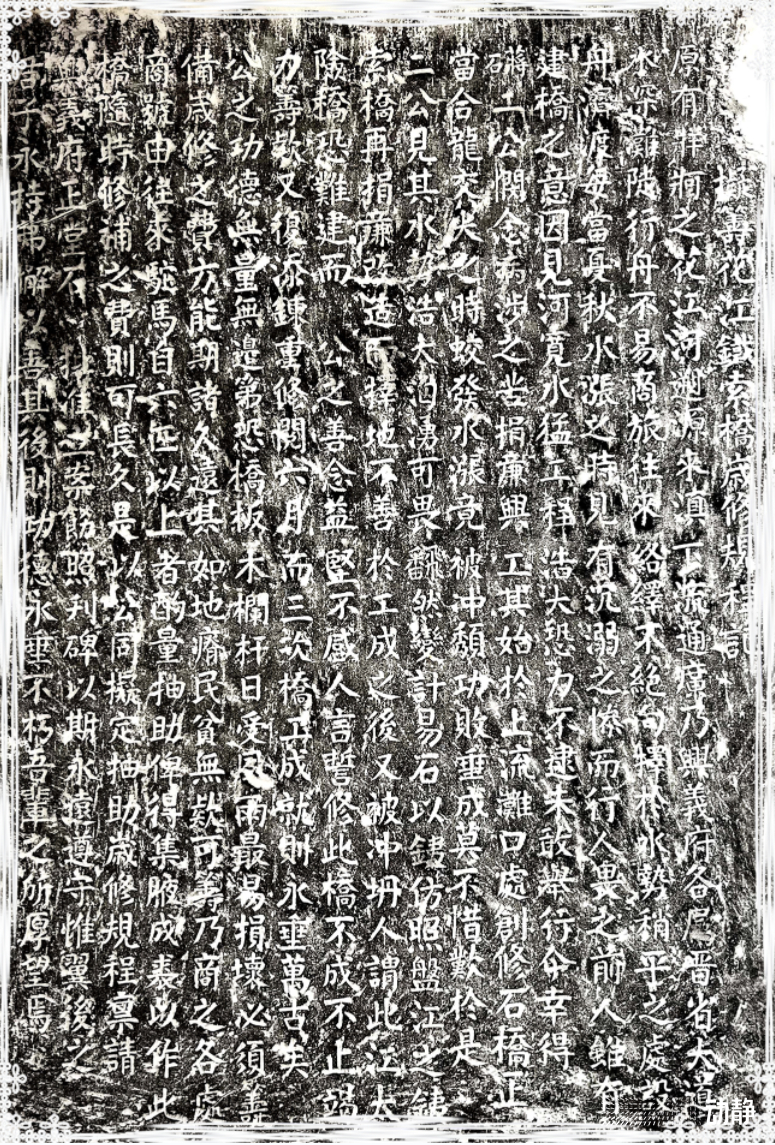 善花江鐵索橋歲修規程記
原有牂牁之花江河迤源來滇下流通廣乃興義府各屬晋省大道
水深灘陡行舟不易商旅往來絡繹不絕向擇於水勢稍平之處設
舟濟渡每當夏秋水漲之時見有沉溺之慘而行人畏之前人雖有
建橋之意因見河寬水猛工程浩大恐力不逮未敢舉行今幸得
蔣二公憫念病涉之苦捐廉興工其始於上流灘口處創修石橋正
當合龍交尖之時蛟發水漲竟被冲頹功敗垂成莫不惜歎於是
二公見其水勢浩大洶湧可畏翻然變計易石以鍊仿照盤江之鍊
索橋再捐廉改造而擇地不善於工成之後又被冲坍人謂此江太
險橋恐難建而公之善念益堅不惑人言誓修此橋不成不止竭
力籌款又復添鍊重修閱六月而三次橋工成就則永垂萬古矣
公之功德無量無邊第恐橋板木欄杆日受風雨最易損壞必須籌
備歲修之費方能期諸久遠其如地瘠民貧無款可籌乃商之各處
商號由往來馱馬自六匹以上者酌量抽助俾得集腋成裘以作此
橋隨時修補之費則可長久是以公同擬定抽助歲修規程禀請
興義府正堂石批准立案飭照刊碑以斯永遠遵守惟冀後之
君子永持弗懈以善其後則功德永垂不朽吾輩之所厚望焉
动静